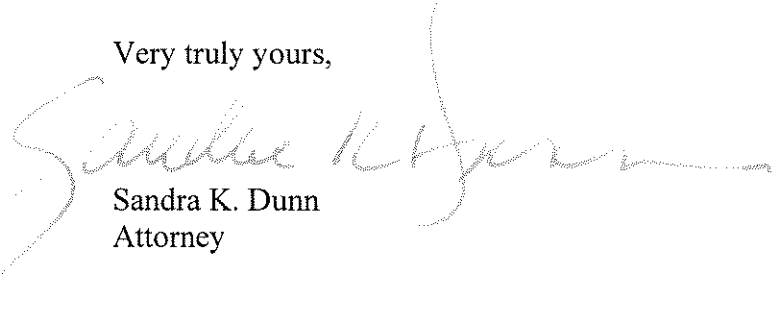 Very truly yours,
Sandra K Dunn
Sandra K. Dunn
Attorney